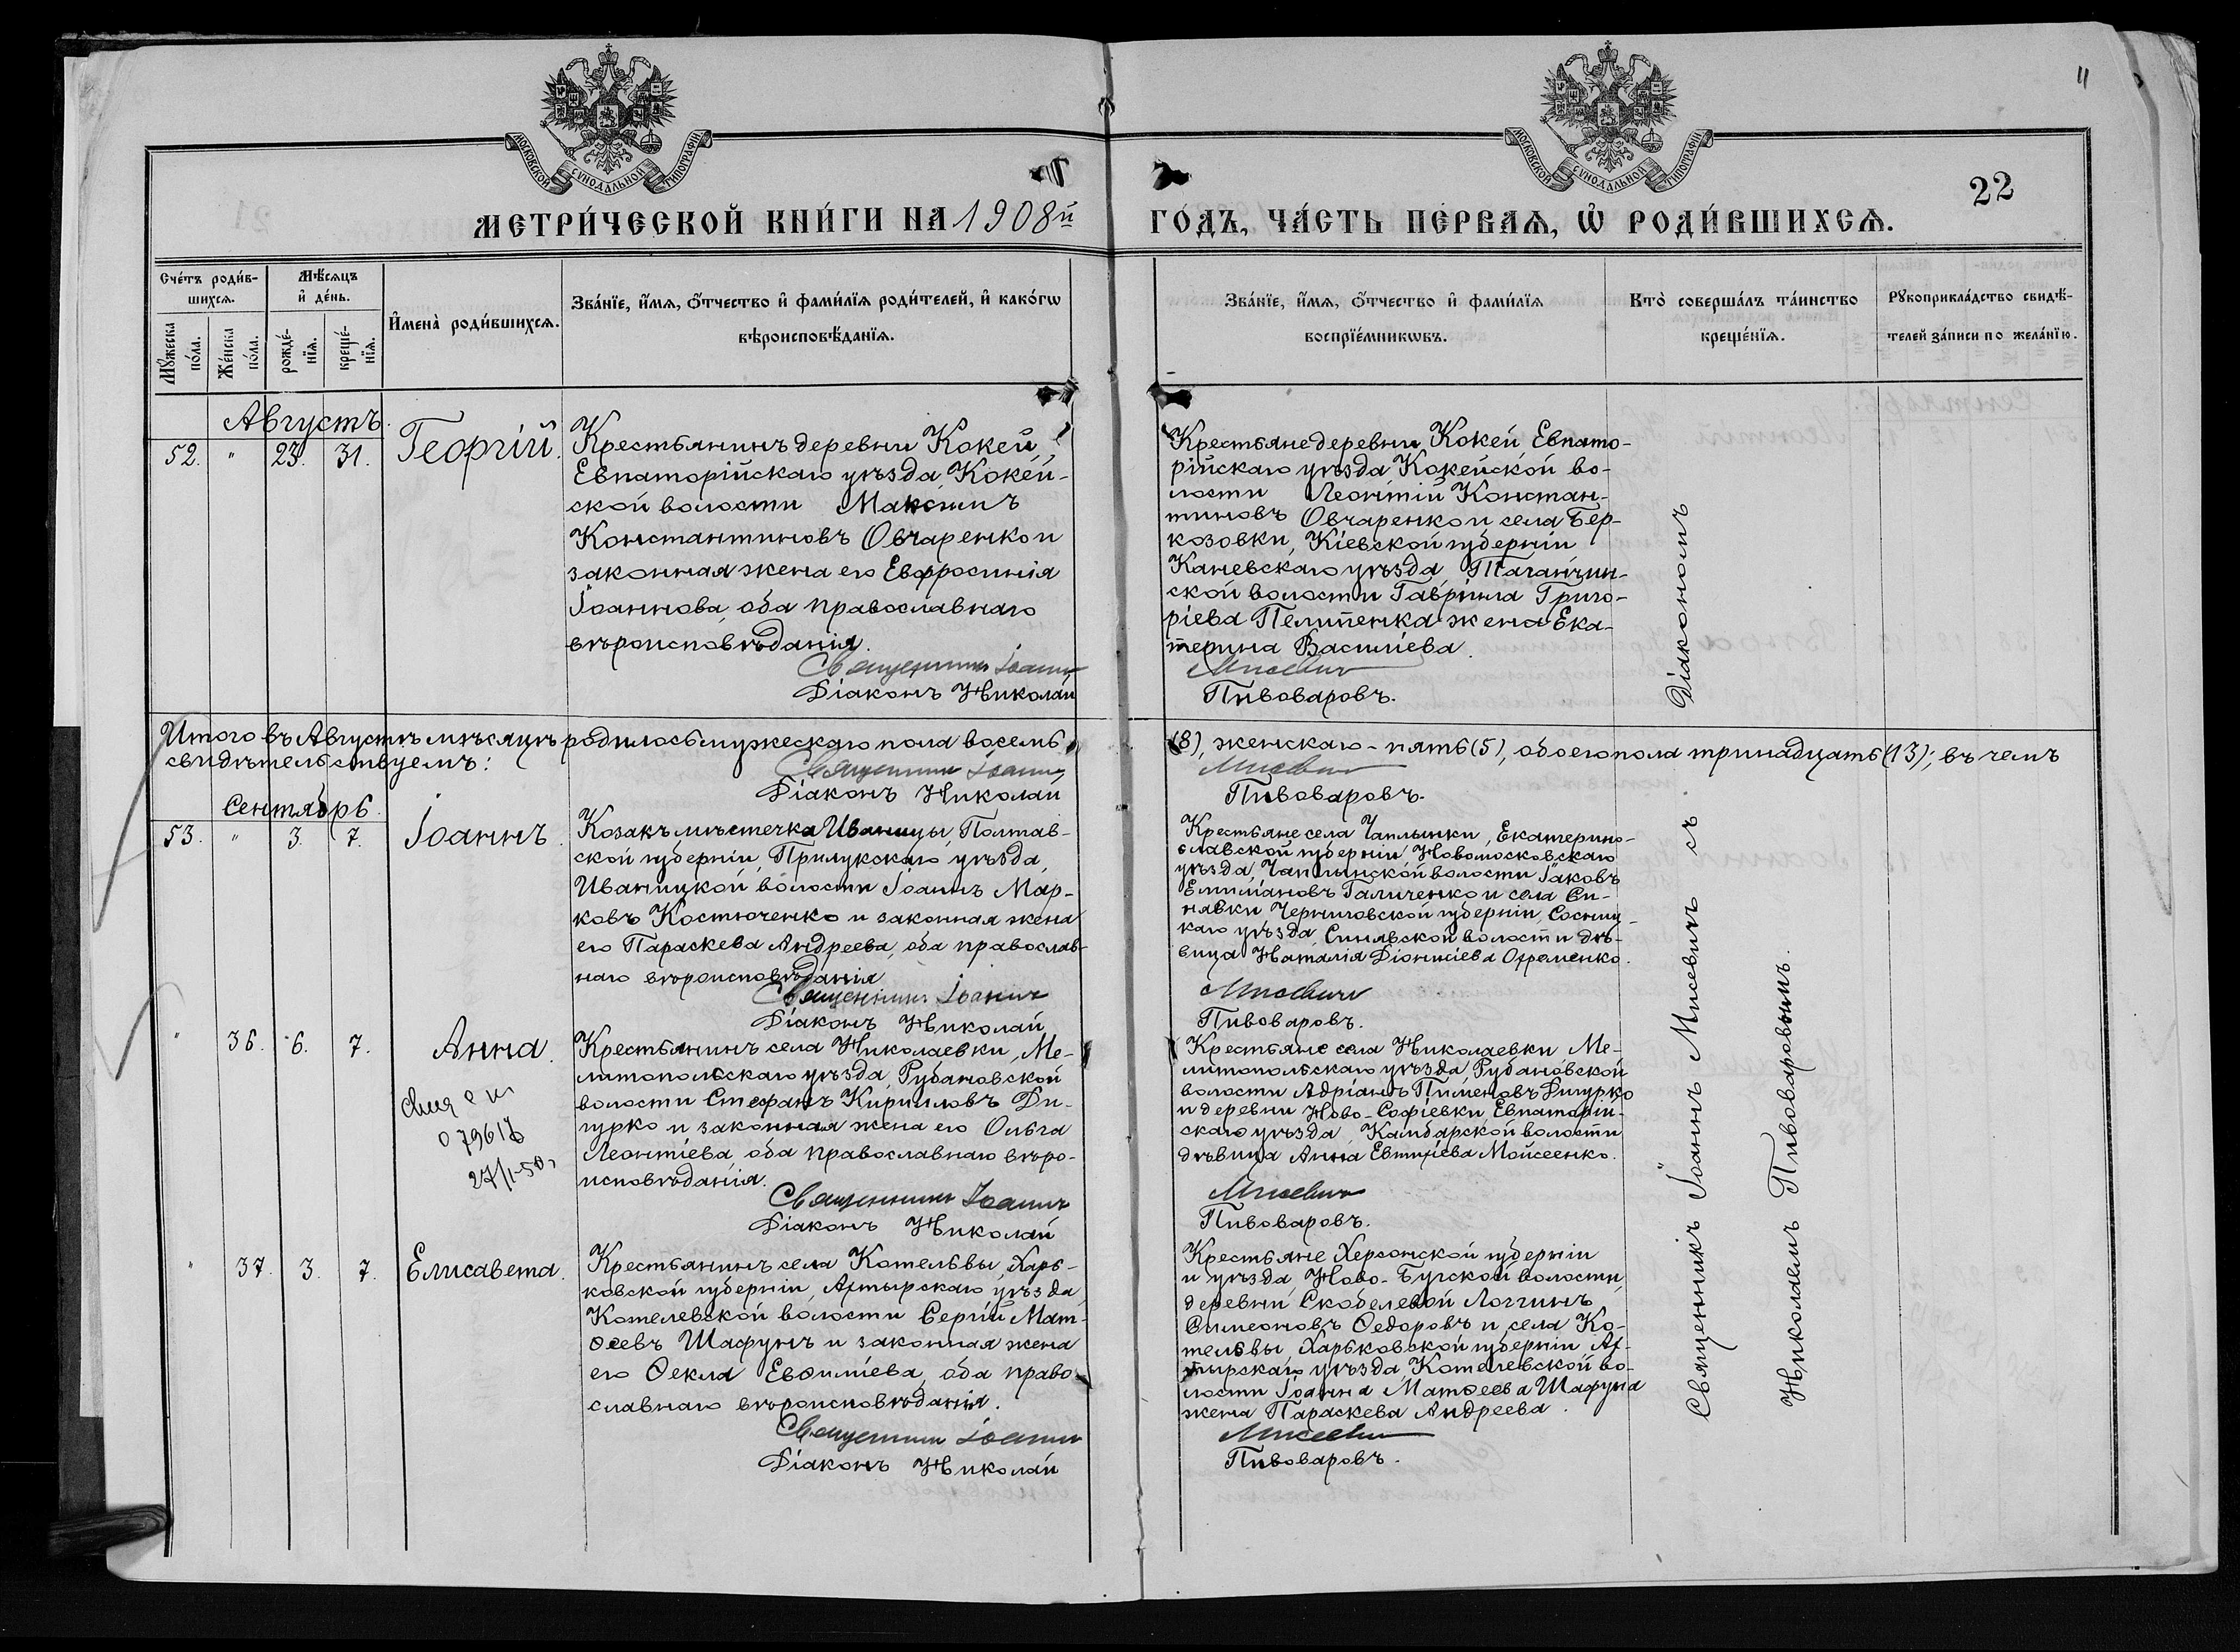 11
МОСКОВСКОЙ СѴНОДАЛЬНОЙ ТИПОГРАФІИ
МОСКОВСКОЙ СѴНОДАЛЬНОЙ ТИПОГРАФІИ
22
МЕТРИ́ЧЕСКОЙ КНИ́ГИ НА 1908й
ГО́ДЪ, ЧА́СТЬ ПЕ́РВАѦ, Ѡ҆ РОДИ́ВШИХСѦ.
Сче́тъ роди́в-
шихсѧ.
Мѣ́сѧцъ
и҆ де́нь.
Мꙋ́жеска
по́ла.
Же́нска
по́ла.
рожде́-
нїѧ.
креще́-
нїѧ.
И҆мена̀ роди́вшихсѧ.
Зва́нїе, и҆́мѧ, ѻ҆́тчество и҆ фами́лїѧ роди́телей, и҆ како́гѡ
вѣроисповѣ́данїѧ.
Зва́нїе, и҆́мѧ, ѻ҆́тчество и҆ фами́лїѧ
воспрїе́мникѡвъ.
Кто̀ соверша́лъ та́инство
креще́нїѧ.
Рꙋкоприкла́дство свидѣ́-
телей за́писи по жела́нїю.
Августъ.
52. " 23. 31. Георгій.
Крестьянинъ деревни Кокей,
Евпаторійскаго уѣзда, Кокей-
ской волости Максимъ
Константиновъ Овчаренко и
законная жена его Евфросинія
Іоаннова, оба православнаго
вѣроисповѣданія.
Священникъ Іоаннъ
Діаконъ Николай
Крестьяне деревни Кокей Евпато-
рійскаго уѣзда, Кокейской во-
лости Леонтій Констан-
тиновъ Овчаренко и села Бер-
козовки, Кіевской губерніи
Каневскаго уѣзда Таганчин-
ской волости Гавріила Григо-
ріева Пелипенка жена Ека-
терина Васильева.
Мисевичъ
Пивоваровъ.
Итого въ Августѣ мѣсяцѣ родилось мужескаго пола восемь
(8), женскаго - пять (5), обоего пола тринадцать (13); въ чемъ
свидѣтельствуемъ:
Священникъ Іоаннъ
Діаконъ Николай
Мисевичъ
Пивоваровъ.
Сентябрь.
53. " 3. 7. Іоаннъ.
Козакъ мѣстечка Иваницы, Полтав-
ской губерніи, Прилукскаго уѣзда,
Иваницкой волости Іоаннъ Мар-
ковъ Костюченко и законная жена
его Параскева Андреева, оба православ-
наго вѣроисповѣданія
Священникъ Іоаннъ
Діаконъ Николай
Крестьяне села Чаплынки, Екатерино-
славской губерніи, Новомосковскаго
уѣзда, Чаплынской волости Іаковъ
Емиліановъ Галиченко и села Си-
нявки Черниговской губерніи, Сосниц-
каго уѣзда, Синявской волости дѣ-
вица Наталія Діонисіева Офоменко.
Мисевичъ
Пивоваровъ.
" 36. 6. 7. Анна.
27/I-50
Крестьянинъ села Николаевки, Ме-
литопольскаго уѣзда, Рубановской
волости Стефанъ Кирилловъ Ди-
гурко и законная жена его Ольга
Леонтіева, оба православнаго вѣро-
исповѣданія.
Священникъ Іоаннъ
Діаконъ Николай
Крестьяне села Николаевки Ме-
литопольскаго уѣзда, Рубановской
волости Адріанъ Пименовъ Дигурко
и деревни Ново-Софіевки, Евпаторій-
скаго уѣзда, Камбарской волости
дѣвица Анна Евтихіева Мойсеенко.
Мисевичъ
Пивоваровъ.
" 37. 3. 7. Елисавета.
Крестьянинъ села Котельвы, Харь-
ковской губерніи, Ахтырскаго уѣзда,
Котелевской волости Сергій Мат-
ѳеевъ Шафунъ и законная жена
его Ѳекла Евѳиміева, оба право-
славнаго вѣроисповѣданія.
Священникъ Іоаннъ
Діаконъ Николай
Крестьяне Херсонской губерніи
и уѣзда, Ново-Бугской волости,
деревни Скобелевой Логгинъ
Симеоновъ Ѳедоровъ и села Ко-
тельвы, Харьковской губерніи, Ах-
тырскаго уѣзда, Котелевской во-
лости Іоанна Матѳеева Шафуна
жена Параскева Андреева.
Мисевичъ
Пивоваровъ.
Священникъ Іоаннъ Мисевичъ съ Діакономъ
Николаемъ Пивоваровымъ.